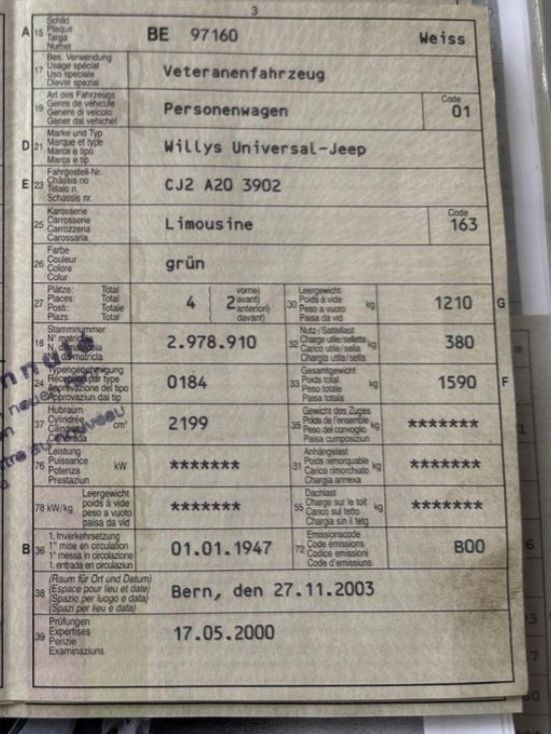 3
A 15 Schild Plaque Targa Numer BE 97160 Weiss
17 Bes. Verwendung Usage spécial Uso speciale Diever spezial Veteranenfahrzeug
19 Art des Fahrzeugs Genre de véhicule Genere di veicolo Gener dal vehichel Personenwagen Code 01
D 21 Marke und Typ Marque et type Marca e tipo Marca e tip Willys Universal-Jeep
E 23 Fahrgestell-Nr. Châssis no Telaio n. Schassis nr. CJ2 A20 3902
25 Karosserie Carrosserie Carrozzeria Carossaria Limousine Code 163
26 Farbe Couleur Colore Colur grün
27 Plätze: Total Places: Total Posti: Totale Plazs: Total 4 2 vorne) avant) anteriori) davant) 30 Leergewicht Poids à vide Peso a vuoto Paisa da vid kg 1210 G
18 Stammnummer N° matric N. d matricola da matricla 2.978.910 32 Nutz-/Sattellast Charge utile/sellette Carico utile/sella Chargia utila/sella kg 380
24 Typengenehmigung Réception par type Approvazione del tipo Approvaziun dal tip 0184 33 Gesamtgewicht Poids total Peso totale Paisa totala kg 1590 F
37 Hubraum Cylindrée Cilindrata cm³ 2199 35 Gewicht des Zuges Poids de l'ensemble Peso del convoglio Paisa cumposiziun kg *******
76 Leistung Puissance Potenza Prestaziun kW ******* 31 Anhängelast Poids remorquable Carico rimorchiato Chargia annexa kg *******
78 kW/kg Leergewicht poids à vide peso a vuoto paisa da vid ******* 55 Dachlast Charge sur le toit Carico sul tetto Chargia sin il tetg kg *******
B 36 1. Inverkehrsetzung 1re mise en circulation 1a messa in circolazione 1. entrada en circulaziun 01.01.1947 72 Emissionscode Code émissions Codice emissioni Code d'emissiuns B00
38 (Raum für Ort und Datum) (Espace pour lieu et date) (Spazio per luogo e data) (Spazi per lieu e data) Bern, den 27.11.2003
39 Prüfungen Expertises Perizie Examinaziuns 17.05.2000
au nouveau